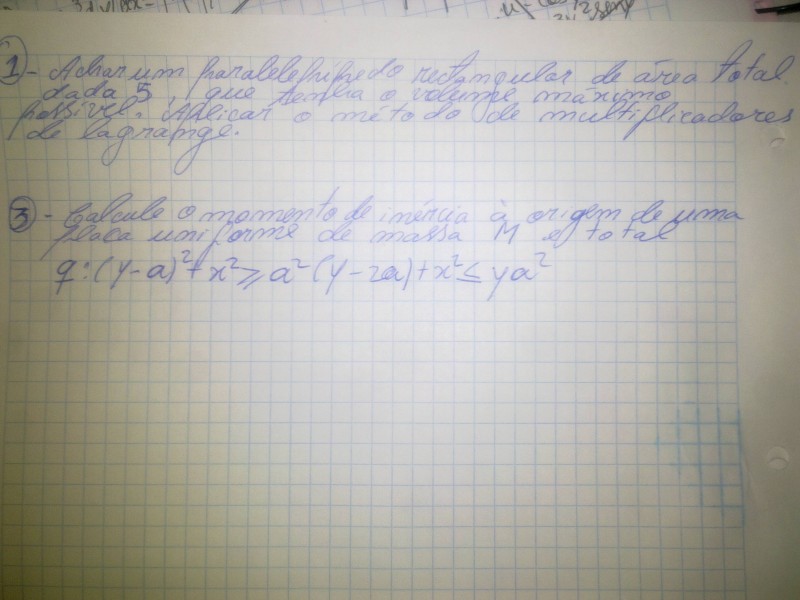 1 - Achar um paralelepípedo rectangular de área total
dada 5, que tenha o volume máximo
possível. Aplicar o método de multiplicadores
de lagrange.
3 - Calcule o momento de inércia à origem de uma
placa uniforme de massa M e total
q: (y-a)² + x² ≥ a² (y-2a) + x² ≤ ya²